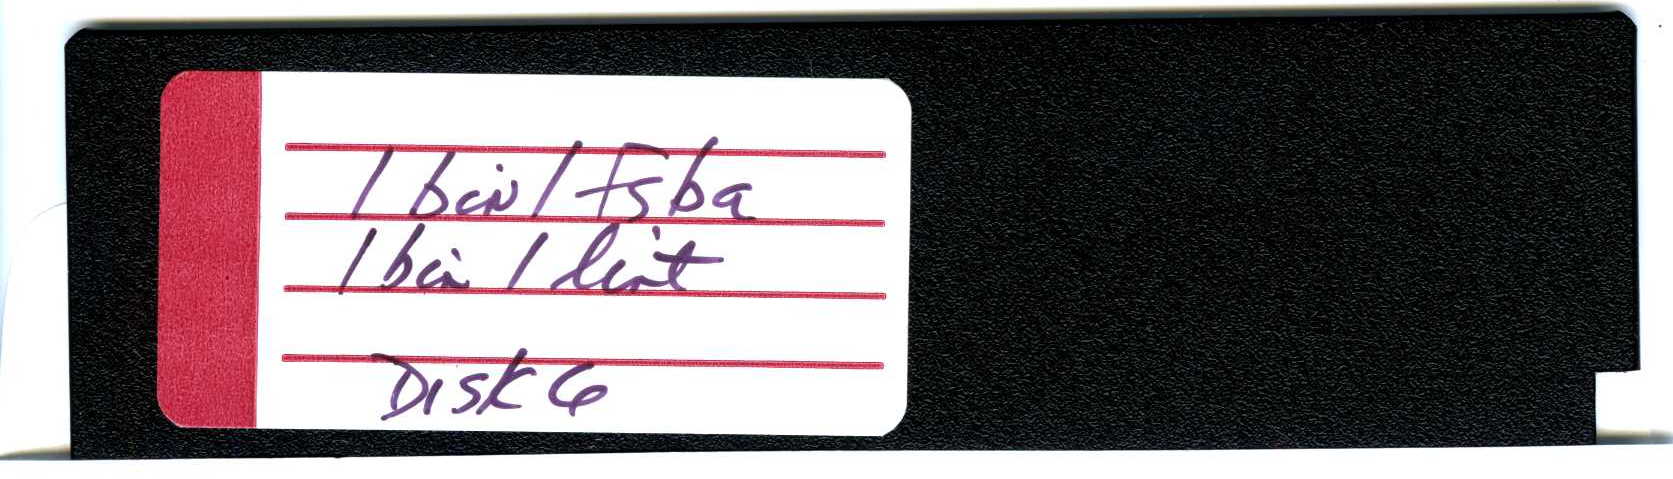 /bin/fsba
/bin/lint
Disk 6